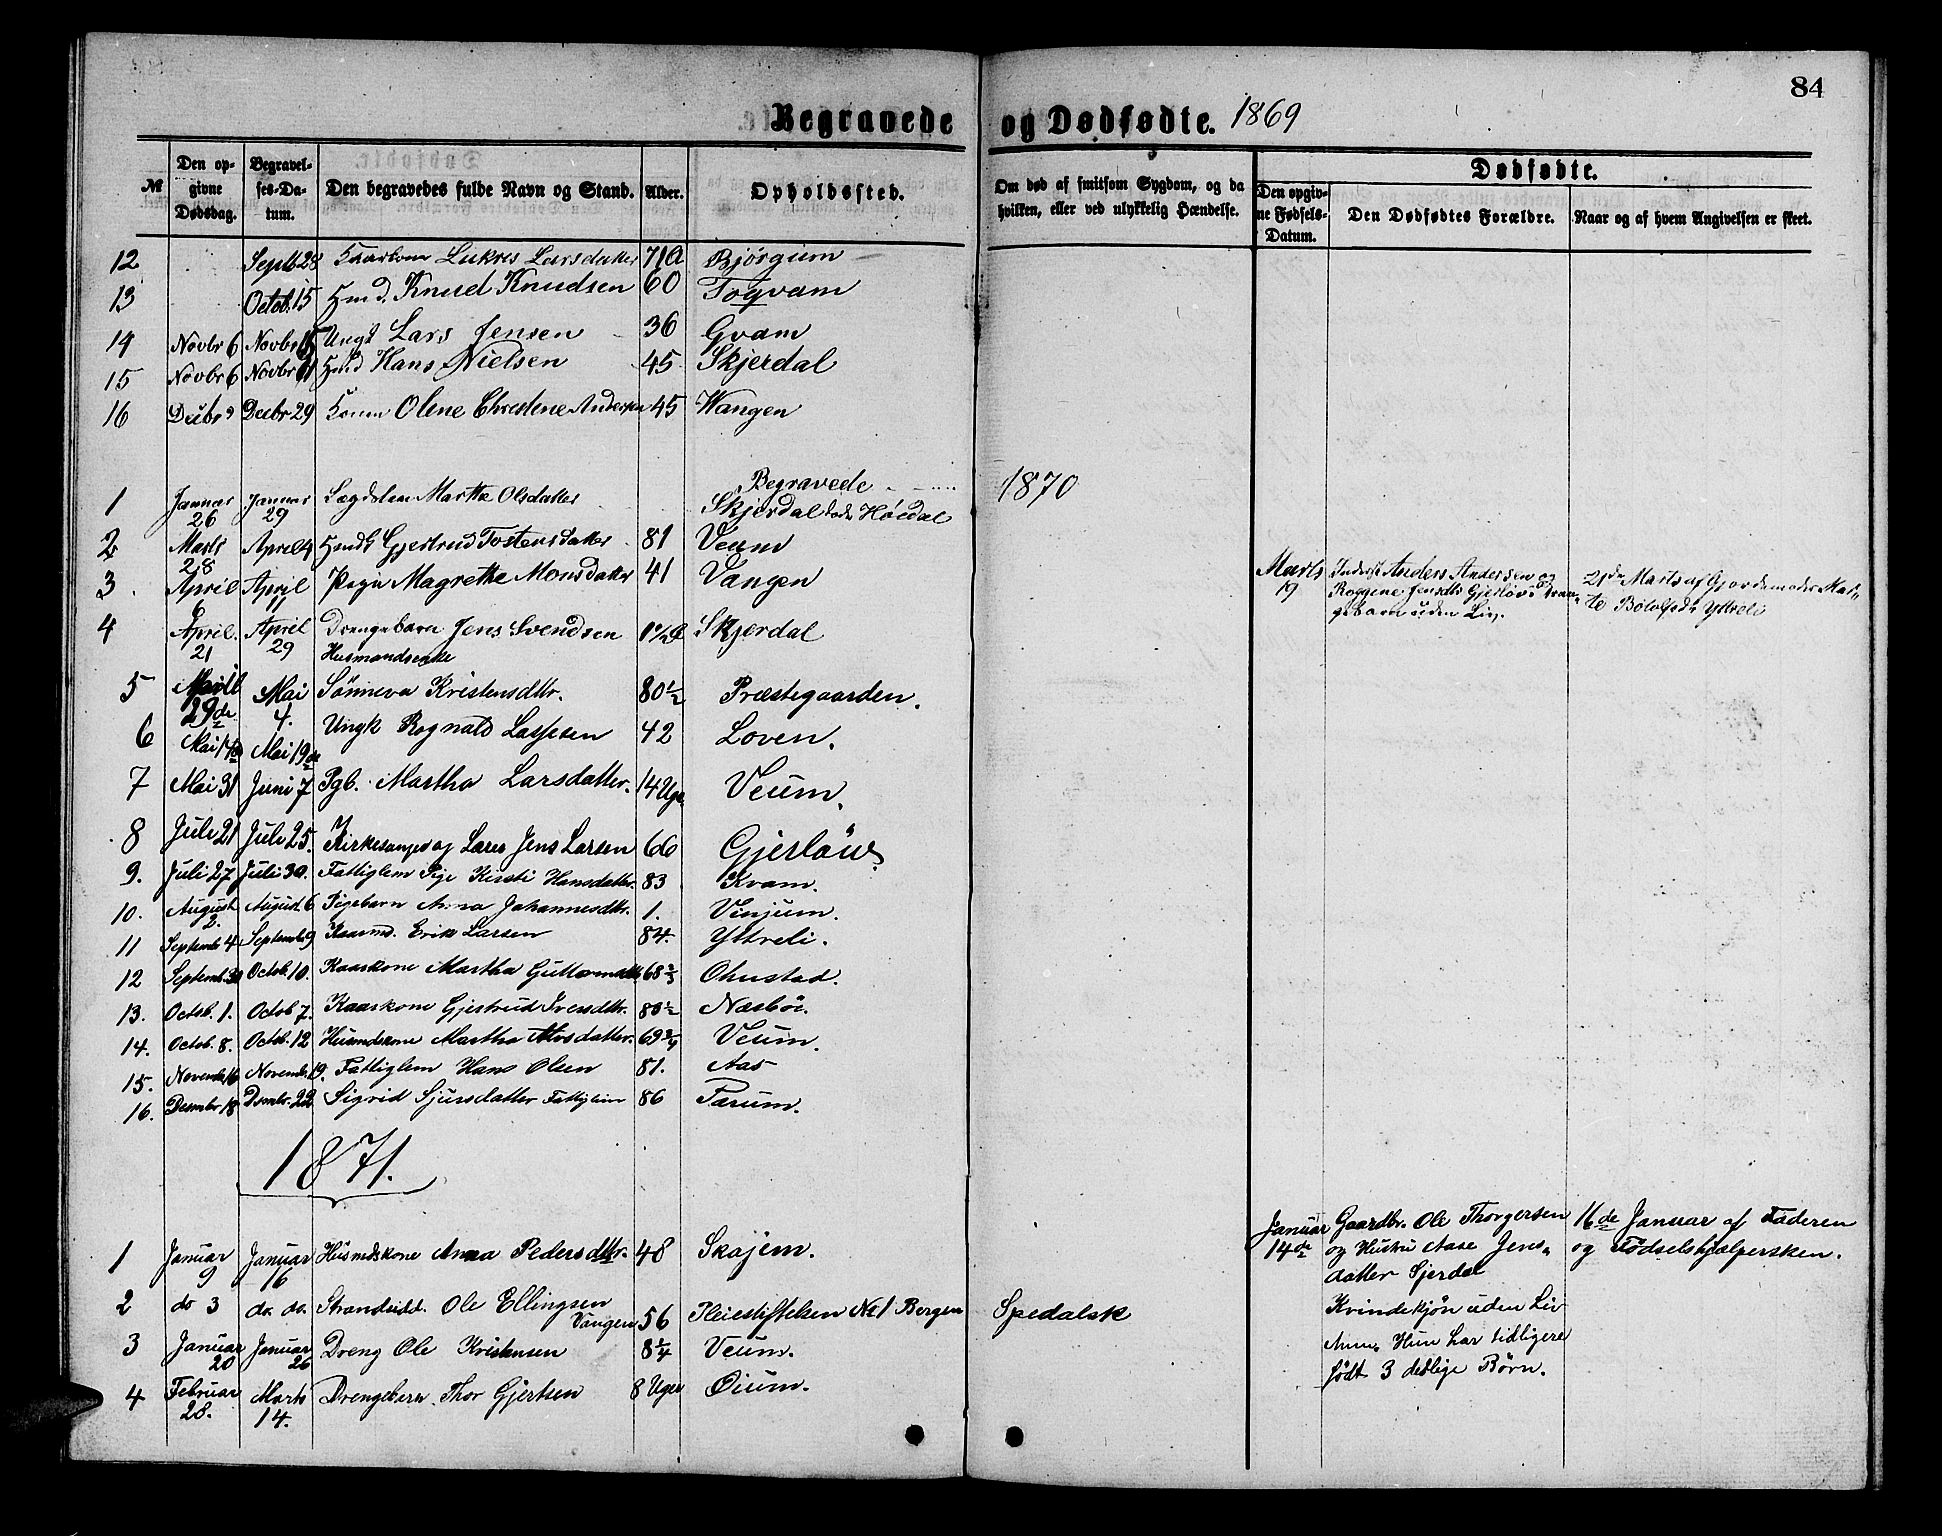 84
Begravede og Dødfødte. 1869
Dødfødte.
№ Den opgivne Dødsdag. Begravelses-Datum. Den begravedes fulde Navn og Stand. Alder. Opholdssted. Om død af smitsom Sygdom, og da hvilken, eller ved ulykkelig Hændelse. Den opgivne Fødsels-Datum. Den Dødfødtes Forældre. Naar og af hvem Angivelsen er skeet.
12 Septb 28 Lukris Larsdatter 71 Bjørgum
13 Octob. 15 Hmd. Knud Knudsen 60 Togvam
14 Novbr 6 Novbr 15 Ungk Lars Jensen 36 Gvam
15 Novbr 6 Novbr Hmd Hans Nielsen 45 Skjerdal
16 Decbr 9 Decbr 29 Olene Christene Andersen 45 Wangen
Begravede 1870
1 Januar 26 Januar 29 Marthe Olsdatter Skjerdal
2 Marts 28 April 4 Gjertrud Tostensdatter 81 Veum
3 April 6 April 11 Magrethe Monsdatter 41 Vangen
Marts 19 Inderst Anders Andersen og
21de Marts af Gjordemoder Mar-
te Botolfsdr Yttreli
gebarn uden Liv.
4 April 21 April 29 Drengebarn Jens Svendsen Skjerdal
Husmandsenke
5 29de Mai 4. Sønneva Kristensdttr. 80 1/2 Præstegaarden.
6 Mai 14de Mai 19de Ungk Rognald Lassesen 42 Loven.
7 Mai 31 Juni 7 Pgb. Martha Larsdatter. 14 Uge Veum.
8 Juli 21 Juli 25. Kirkesanger og Lærer Jens Larsen 66 Gjerløw.
9. Juli 27 Juli 30. Fattiglem Pige Kirsti Hansdatter. 83 Kvam.
10. August 2. August 6 Pigebarn Anna Johannesdtr. 1. Vinjum.
11 Septembr 4 Septembr 9 Kaarmd. Erik Larsen 84. Yttreli.
12 Septemb. 30 Octob. 10. Kaarkone Martha Guttormsdtt 68 Ohnstad.
13. Octob. 1. Octob 7. Kaarkone Gjertrud Iversdtr. 80 1/2 Næsbøe.
14. Octob. 8. Octob. 12 Husmdskone Martha 69 3/4 Veum.
15. Novembr 16 Novembr 19. Fattiglem Hans Olsen 81. Aas
16. Desembr 18 Dsembr. 22 Sigrid Sjursdatter Fattiglem 86 Tærum.
1871.
1 Januar 9 Januar 16 Husmdskone Anna Pedersdttr. 48 Skajem.
Januar 14de Gaardbr. Ole Thorgersen
og Hustru Aase Jens-
datter Sjerdal
16de Januar af Faderen
og Fødselshjælpersken.
2 do 3 do. do. Strandsidd. Ole Ellingsen Vangen 56 Pleiestiftelsen No 1 Bergen Spedalsk
Kvindekjøn uden Liv
Anm. Hun har tidligere
født 3 deslige Børn.
3 Januar 20 Januar 26 Dreng Ole Kristensen 8 1/4 Veum.
4 Februar 28. Marts 14. Drengebarn Thor Gjertsen 8 Uger Øium.